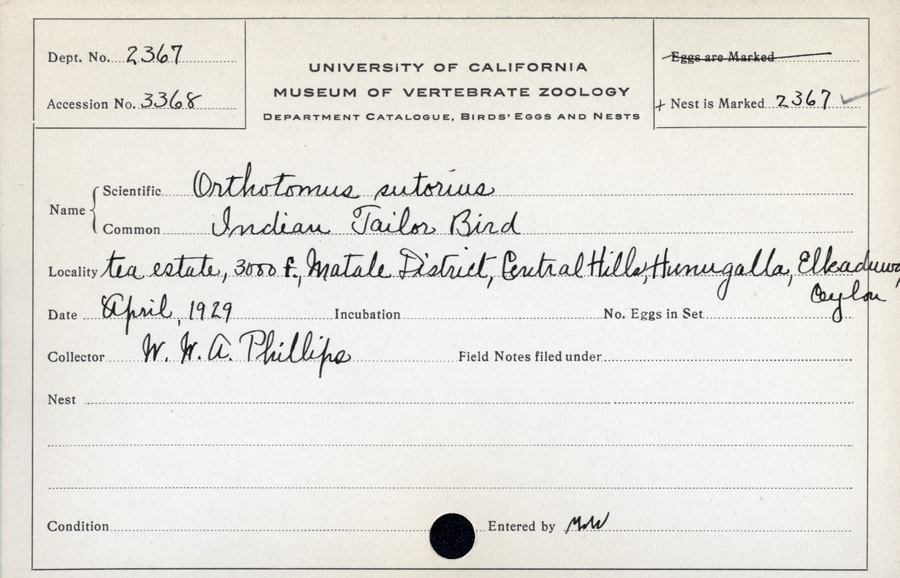 Dept. No. 2367
Accession No. 3368
UNIVERSITY OF CALIFORNIA
MUSEUM OF VERTEBRATE ZOOLOGY
DEPARTMENT CATALOGUE, BIRDS' EGGS AND NESTS
Eggs are Marked
+ Nest is Marked 2367 ✓
Name
Scientific Orthotomus sutorius
Common Indian Tailor Bird
Locality tea estate, 3000 f., Matale District, Central Hills, Hunugalla, Elkaduwa,
Ceylon
Date April, 1929 Incubation No. Eggs in Set
Collector W. W. A. Phillips Field Notes filed under
Nest
Condition Entered by